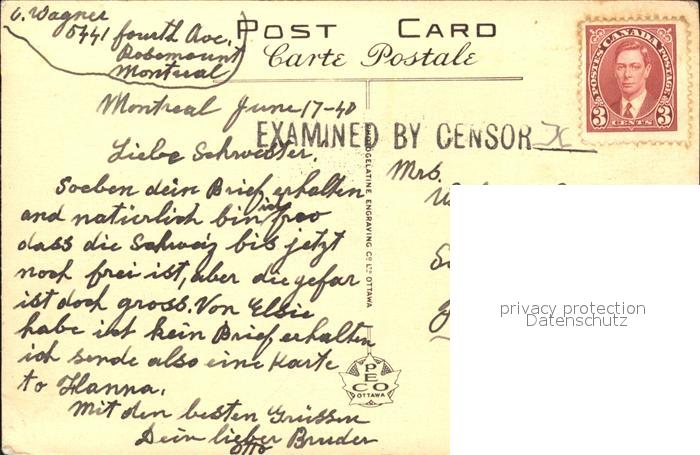 O. Wagner
5441 fourth Ave.
Rosemount
Montreal
POST CARD
Carte Postale
POSTES CANADA POSTAGE
3 CENTS 3
Montreal June 17-40
EXAMINED BY CENSOR
Liebe Schwester.
Mrs.
Soeben dein Brief erhalten
and natürlich bin ich froo
dass die Schweiz bis jetzt
noch frei ist, aber die gefar
ist doch gross. Von Elsie
habe ich kein Brief erhalten
ich sende also eine Karte
to Hanna.
Mit den besten Grüssen
Dein lieber Bruder
Otto
PHOTOGELATINE ENGRAVING CO. LTD. OTTAWA
PECO
OTTAWA
privacy protection
Datenschutz